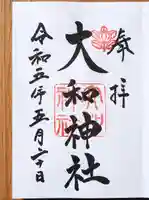 奉拝
大和神社
令和五年五月二十日